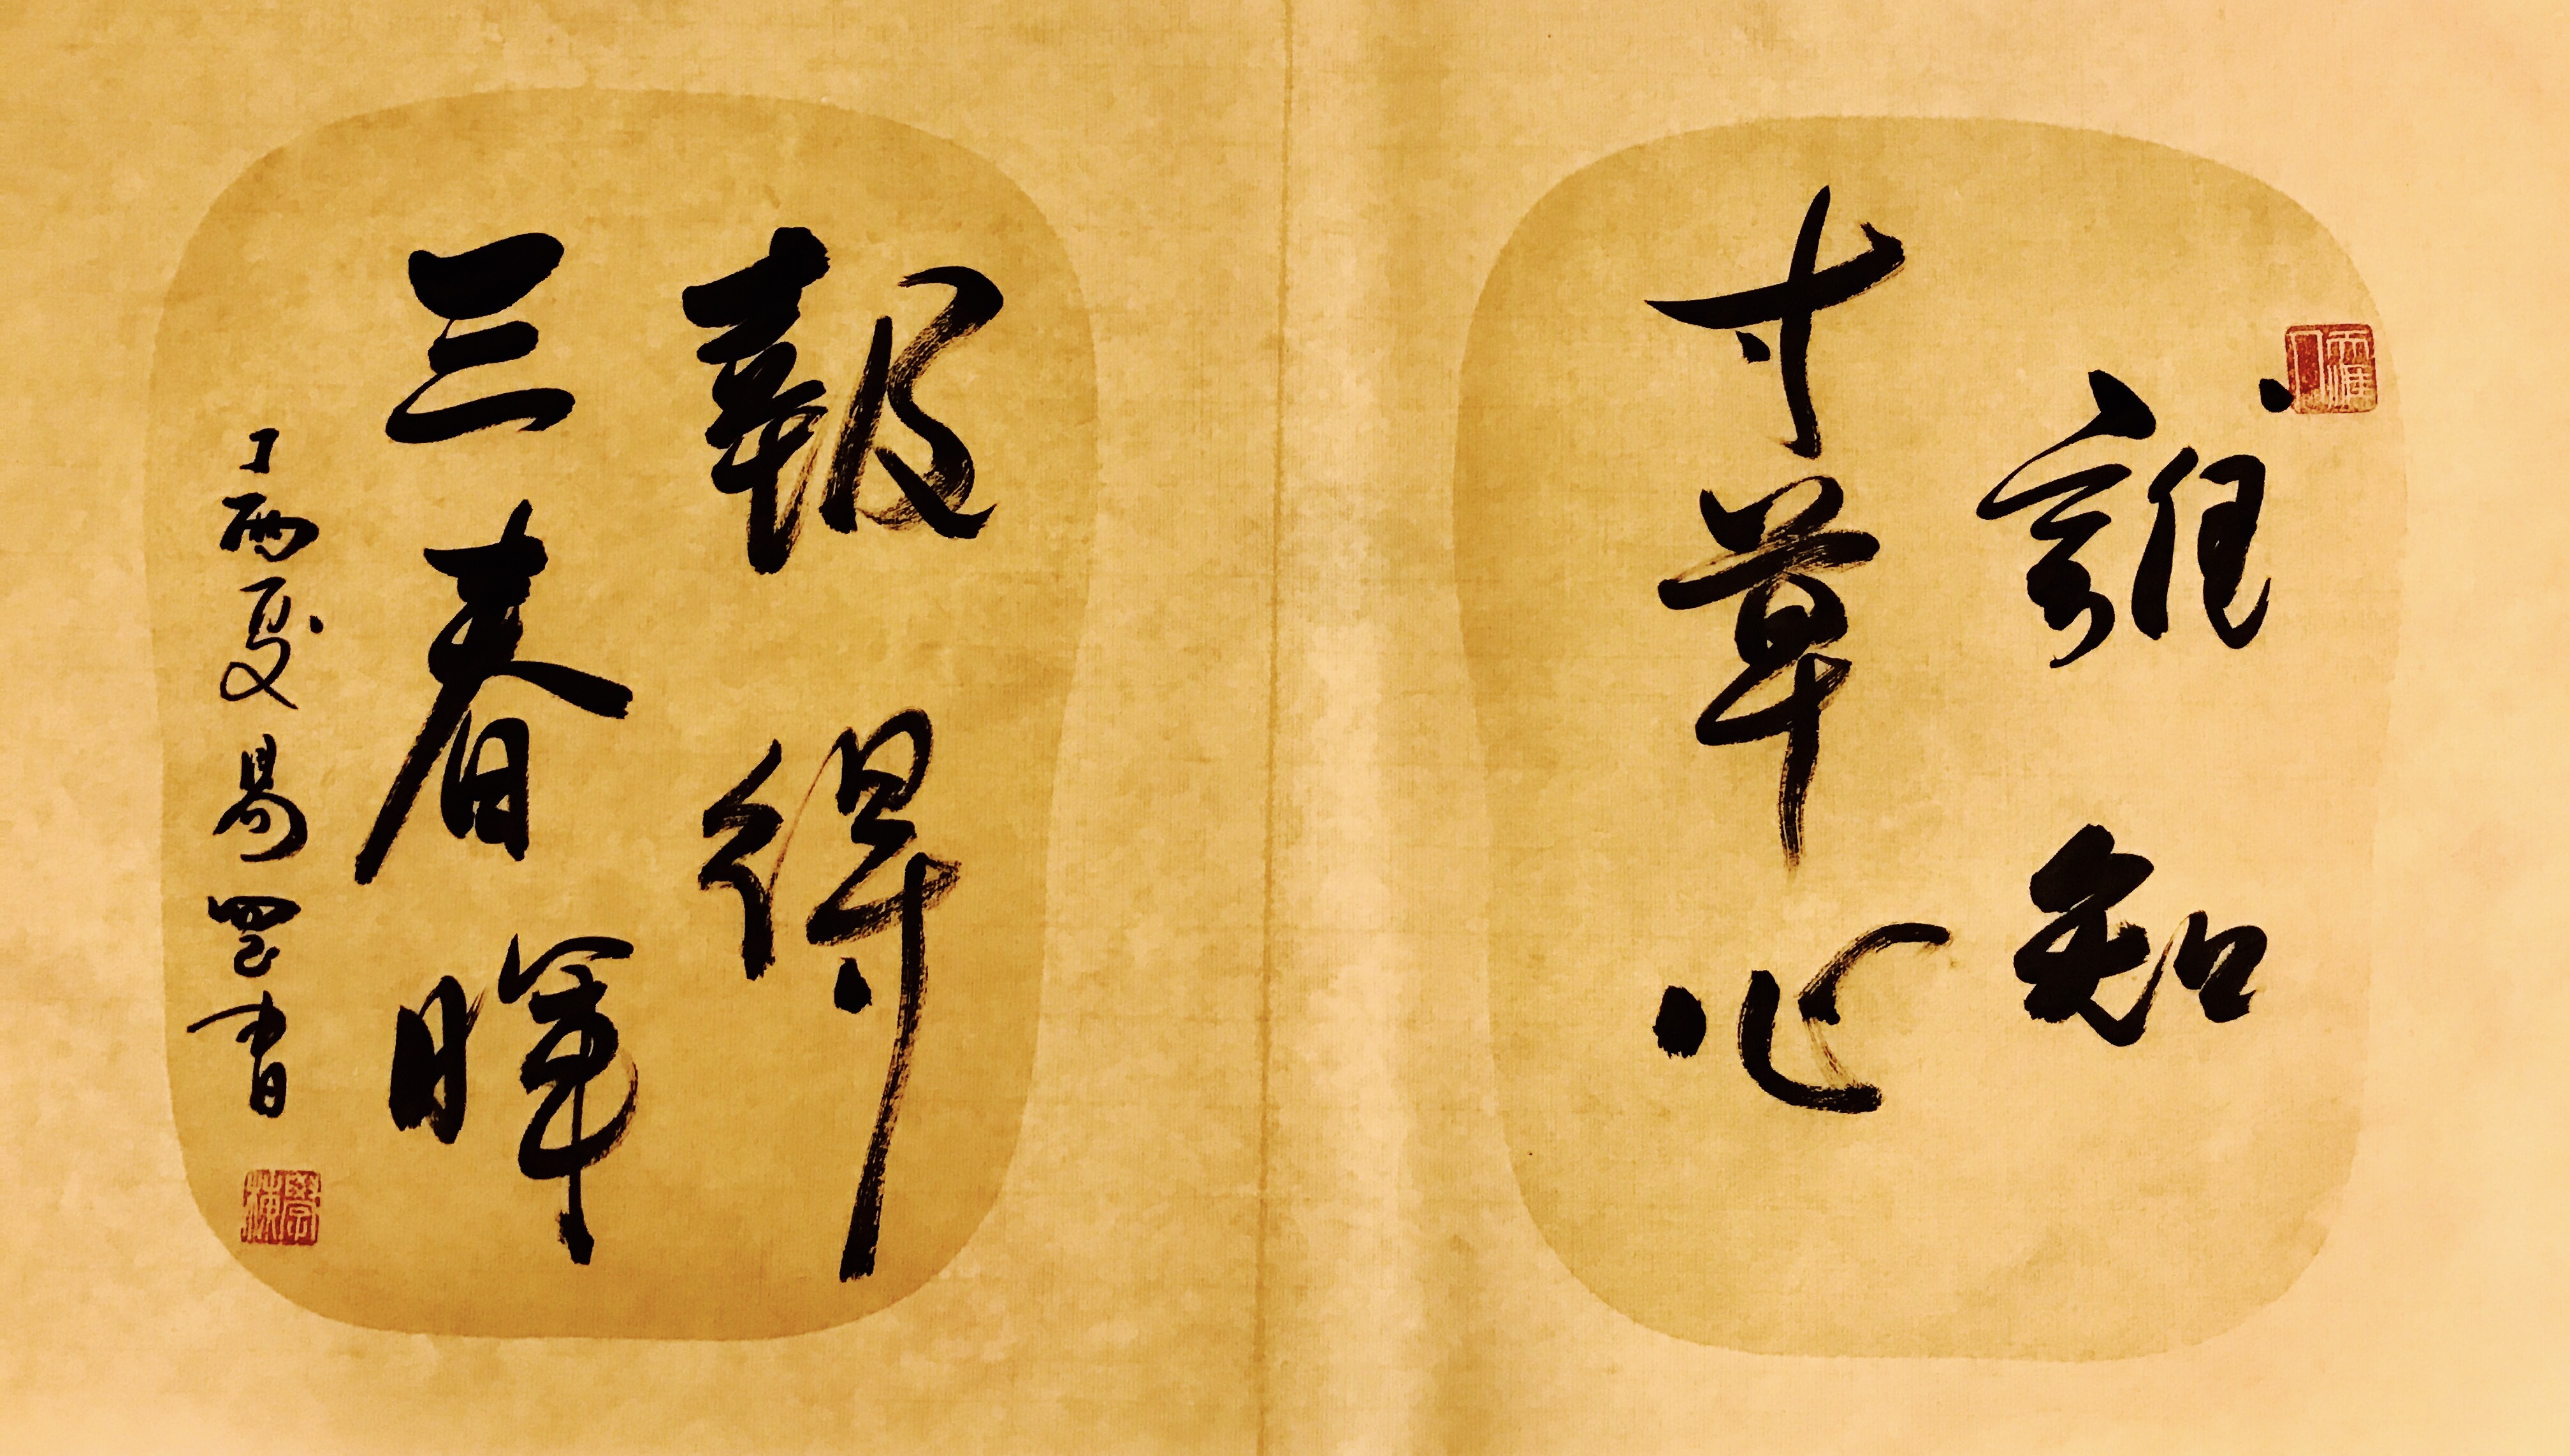 誰知
寸草心
報得
三春暉
丁酉夏易罡書